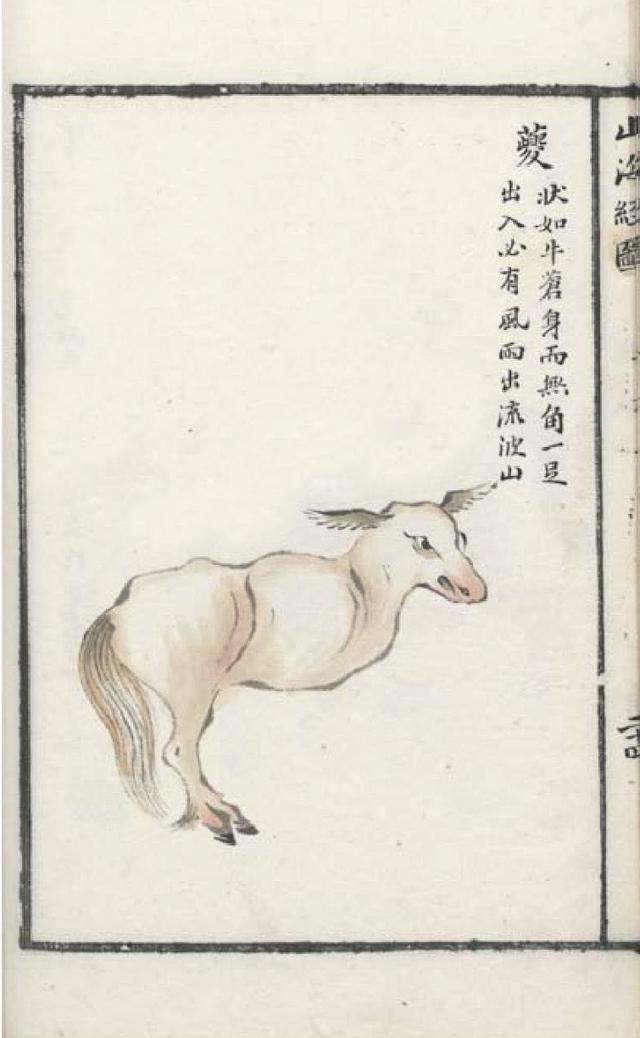 夔
狀如牛蒼身而無角一足
出入必有風雨出流波山
山海經圖